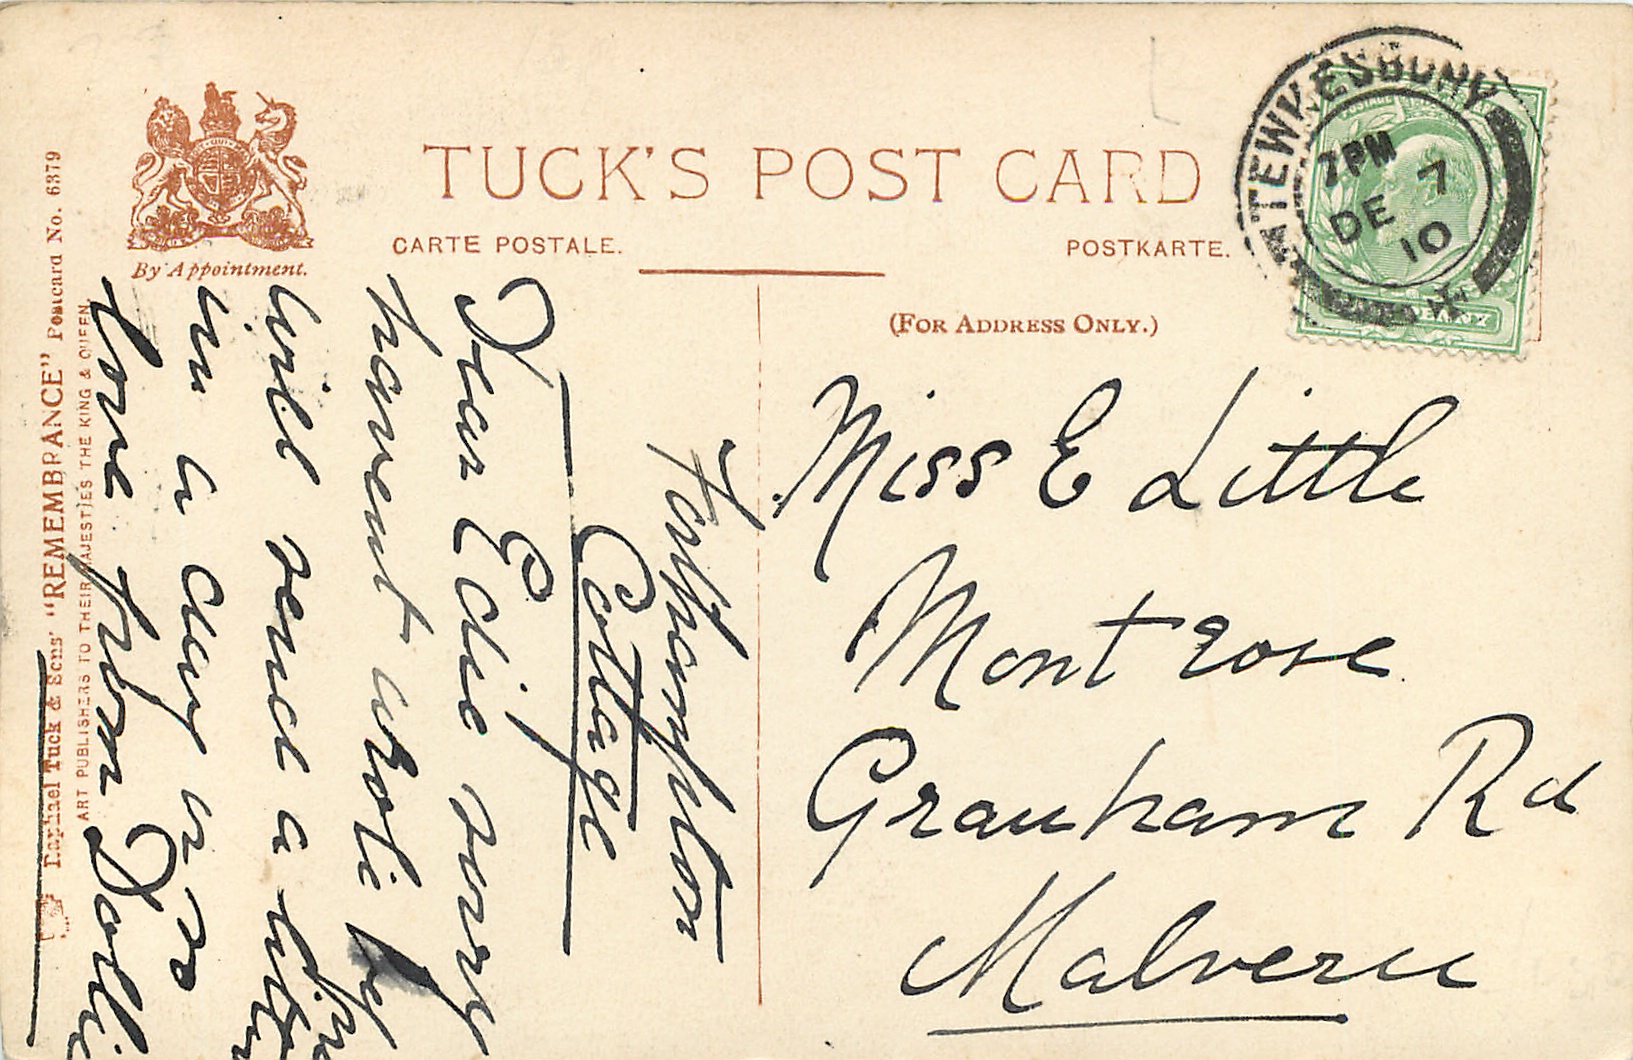 TUCK'S POST CARD
CARTE POSTALE.
POSTKARTE.
(FOR ADDRESS ONLY.)
By Appointment.
Raphael Tuck & Sons' "REMEMBRANCE" Postcard No. 6379
ART PUBLISHERS TO THEIR MAJESTIES THE KING & QUEEN.
TEWKESBURY
7 PM
7
DE
10
POSTAGE
PENNY
Miss E Little
Montrose
Grauham Rd
Malvern
Forthampton
Cottage
Dear Edie sorry
havent wrote
will send a letter
in a day or so
love from Dollie